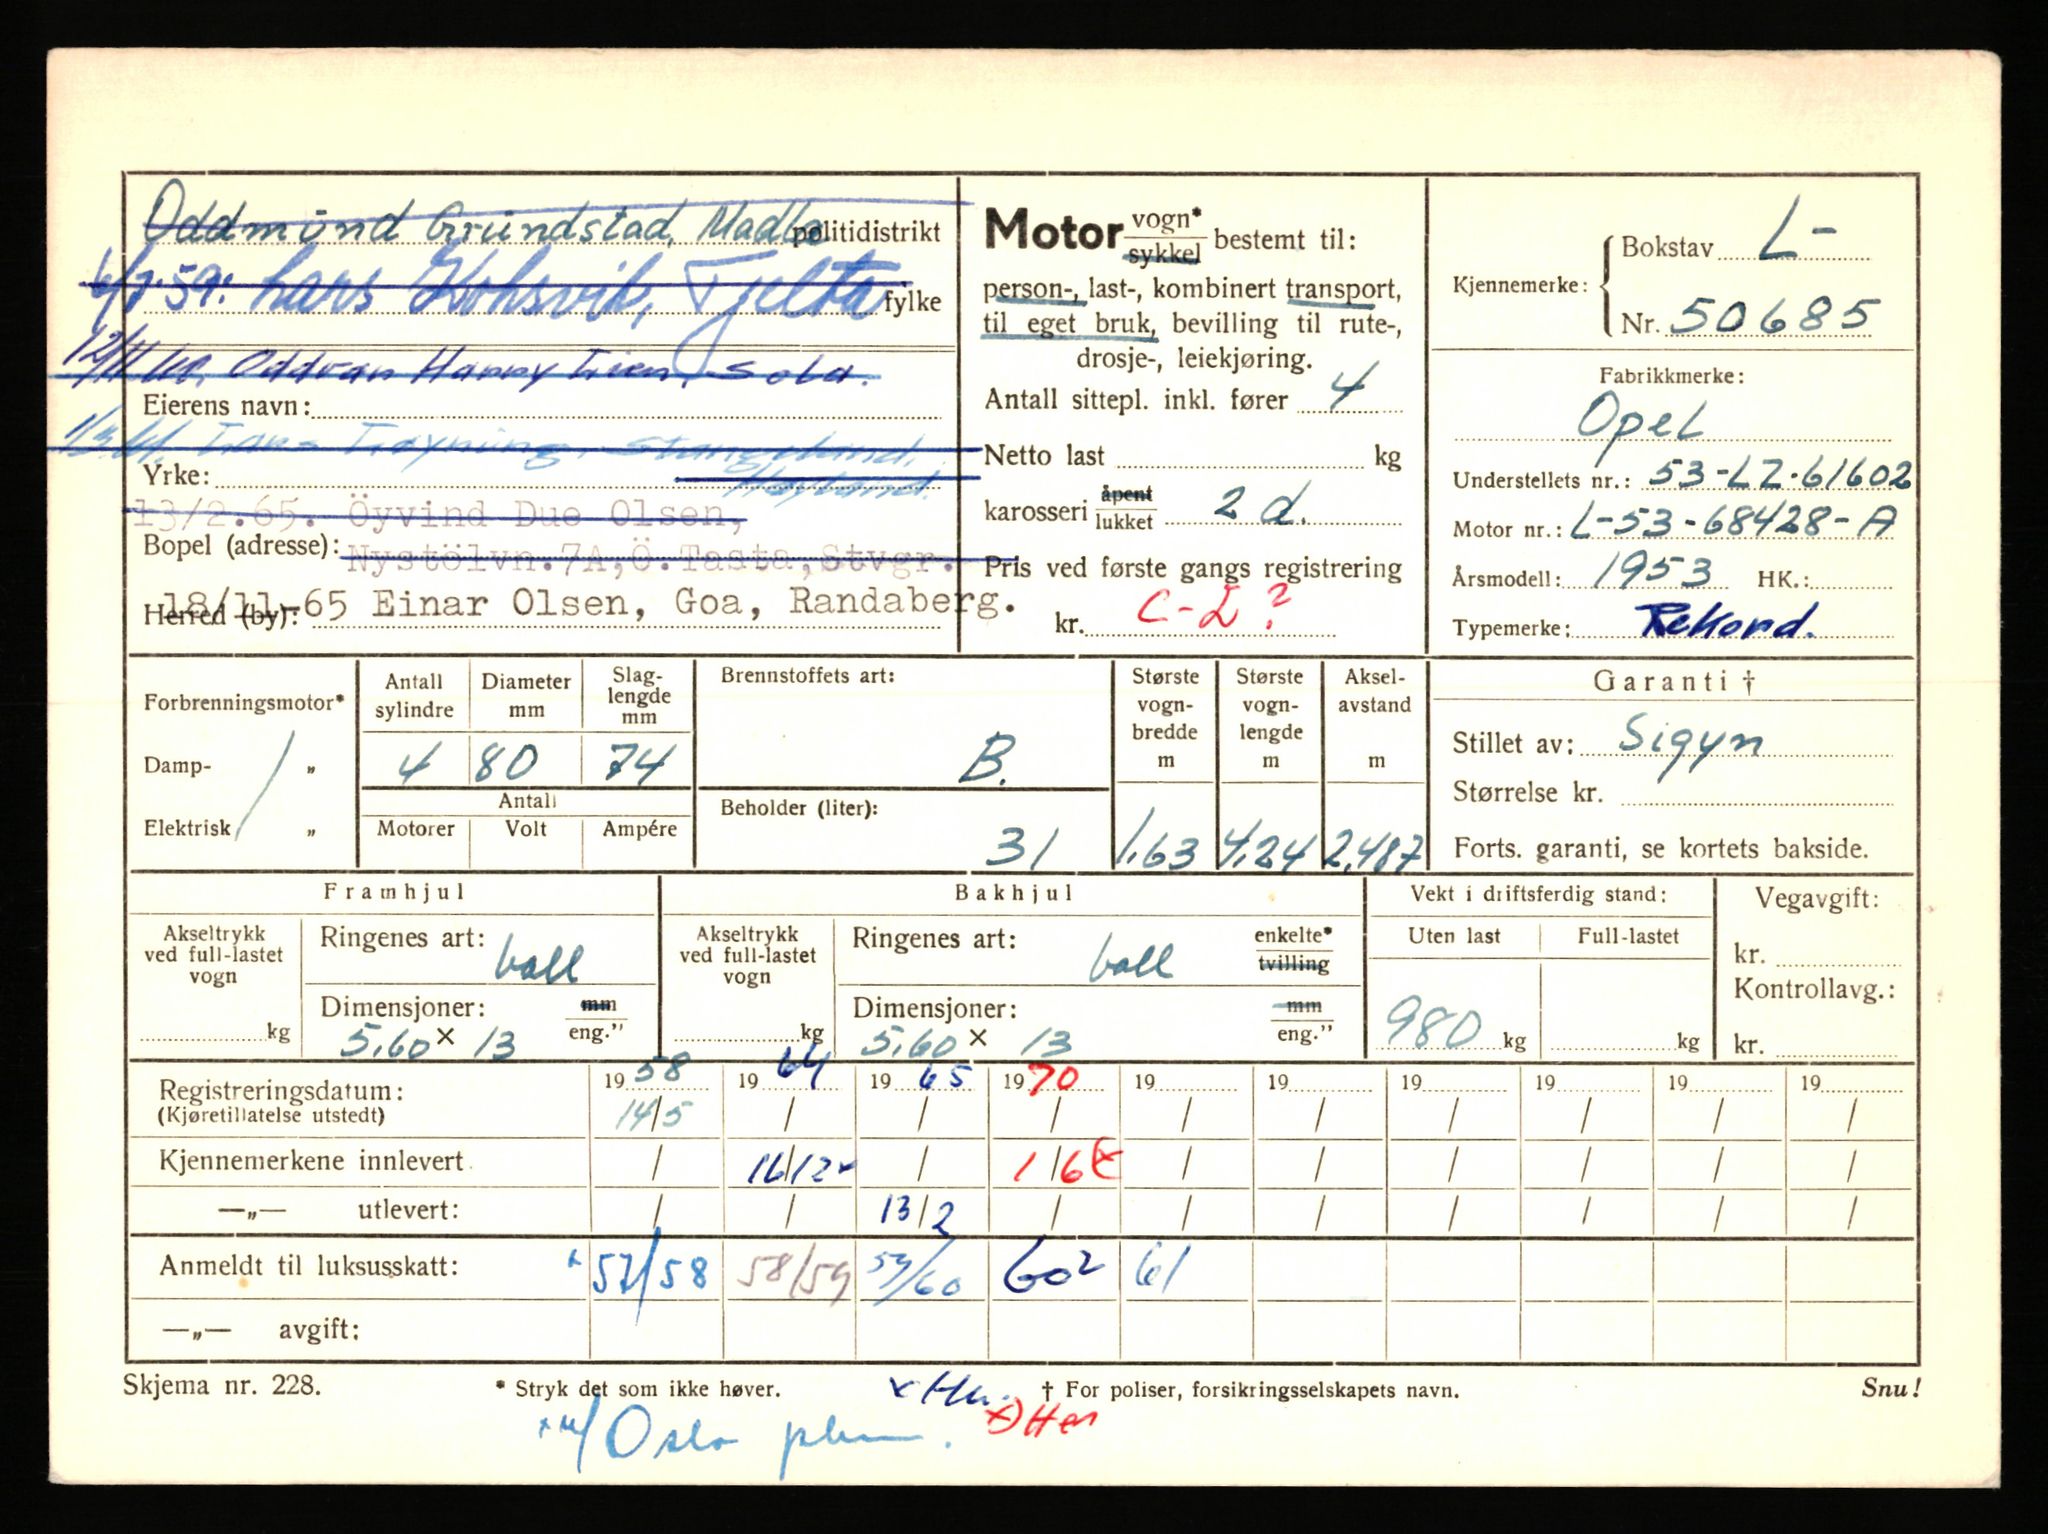 Oddmünd Gründstad, Madla politidistrikt
6/7.59: Lars Kohsvik, Tjelta fylke
12/11 60. Oddvar Harry Lien, Sola.
Eierens navn:
1/3.61. Lars Trøyning, Stangeland,
Yrke: Høyland.
13/2.65. Öyvind Due Olsen,
Bopel (adresse): Nystölvn.7A,Ö.Tasta,Stvgr.
18/11-65 Einar Olsen, Goa, Randaberg.
Herred (by):
Motor vogn* / sykkel bestemt til:
person-, last-, kombinert transport,
til eget bruk, bevilling til rute-,
drosje-, leiekjøring.
Antall sittepl. inkl. fører 4
Netto last kg
karosseri åpent / lukket 2 d.
Pris ved første gangs registrering
kr. C-L?
Kjennemerke: Bokstav L-
Nr. 50685
Fabrikkmerke:
Opel
Understellets nr.: 53-LZ-61602
Motor nr.: L-53-68428-A
Årsmodell: 1953 HK.:
Typemerke: Rekord.
Forbrenningsmotor*
Damp- „
Elektrisk „
Antall sylindre Diameter mm Slaglengde mm
4 80 74
Antall
Motorer Volt Ampére
Brennstoffets art:
B.
Beholder (liter):
31
Største vognbredde m Største vognlengde m Akselavstand m
1,63 4,24 2,487
Garanti †
Stillet av: Sigyn
Størrelse kr.
Forts. garanti, se kortets bakside.
Framhjul
Akseltrykk ved full-lastet vogn kg
Ringenes art: ball
Dimensjoner: mm / eng."
5,60 x 13
Bakhjul
Akseltrykk ved full-lastet vogn kg
Ringenes art: ball enkelte* / tvilling
Dimensjoner: mm / eng."
5,60 x 13
Vekt i driftsferdig stand:
Uten last Full-lastet
980 kg kg
Vegavgift:
kr.
Kontrollavg.:
kr.
Registreringsdatum: 19 58 19 64 19 65 19 70 19 19 19 19 19 19
(Kjøretillatelse utstedt) 14/5 / / / / / / / / /
Kjennemerkene innlevert / 16/12x / 1/6 x / / / / / /
—„— utlevert: / / 13/2 / / / / / / /
Anmeldt til luksusskatt: x 57/58 58/59 59/60 602 61
—„— avgift:
Skjema nr. 228. * Stryk det som ikke høver. x Hu. † For poliser, forsikringsselskapets navn. Snu!
x) Her
x m/ Oslo